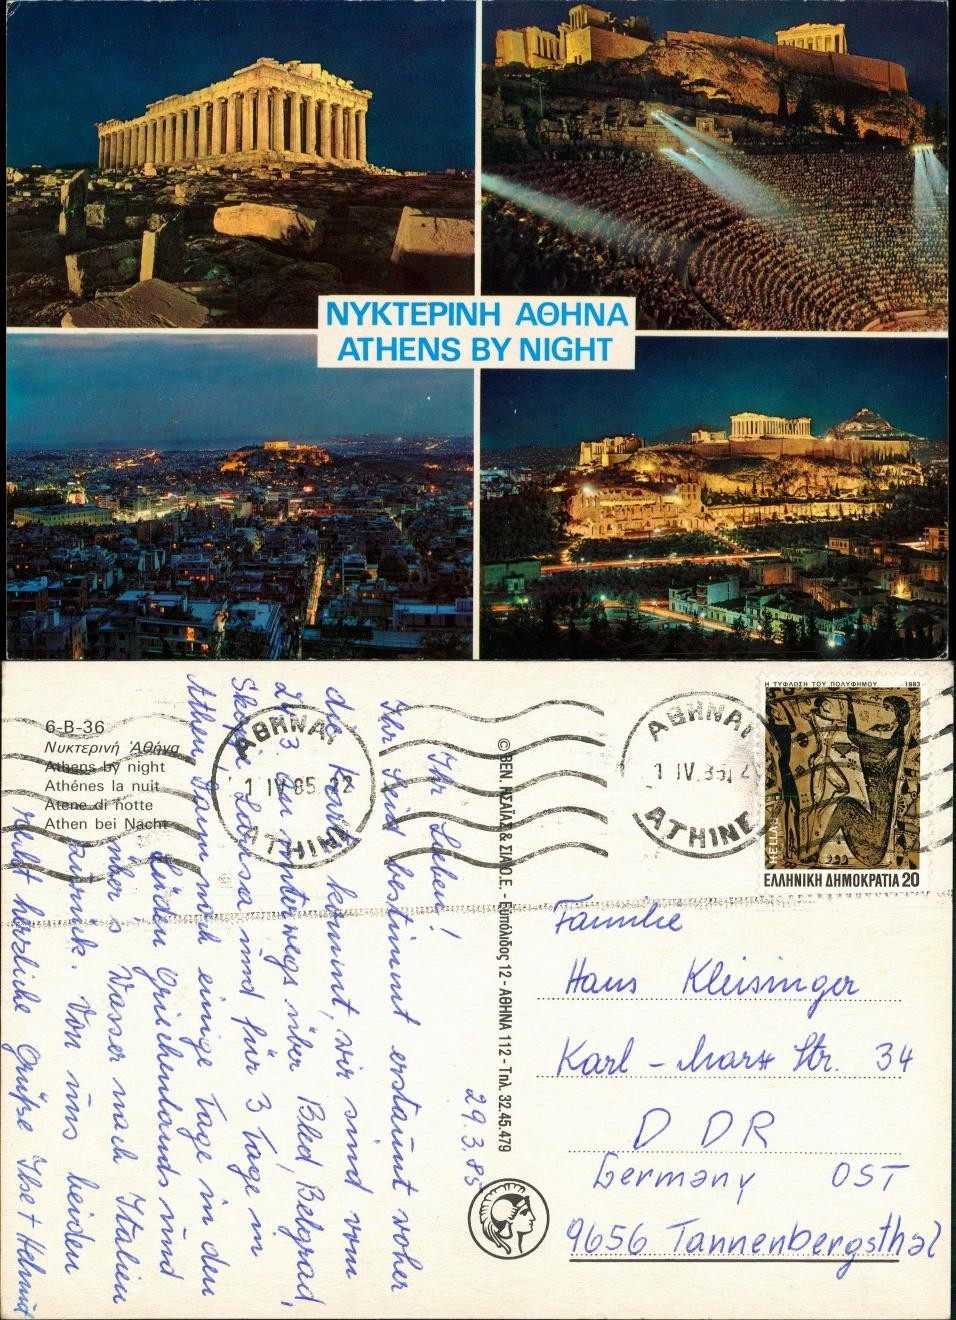 ΝΥΚΤΕΡΙΝΗ ΑΘΗΝΑ
ATHENS BY NIGHT
6-B-36
Νυκτερινή Ἀθήνα
Athens by night
Athénes la nuit
Atene di notte
Athen bei Nacht
29.3.85
Ihr Lieben!
Ihr seid bestimmt erstaunt woher
die Karte kommt, wir sind vom
3. unterwegs über Bled, Belgrad,
Skopje Larissa und für 3 Tage in
Athen, dann noch einige Tage in den
Süden Griechenlands und
über's Wasser nach Italien
zurück. Von uns beiden
recht herzliche Grüße Ilse + Helmut
ΑΘΗΝΑΙ
1 IV 85 22
ATHINE
ΑΘΗΝΑΙ
1 IV. 85
ATHINE
Η ΤΥΦΛΩΣΗ ΤΟΥ ΠΟΛΥΦΗΜΟΥ 1983
HELLAS
ΕΛΛΗΝΙΚΗ ΔΗΜΟΚΡΑΤΙΑ 20
Ο.Ε. - Εὐπόλιδος 12 - ΑΘΗΝΑ 112 - Τηλ. 32.45.479
Familie
Hans Kleisinger
Karl - Marx Str. 34
DDR
Germany OST
9656 Tannenbergsthal